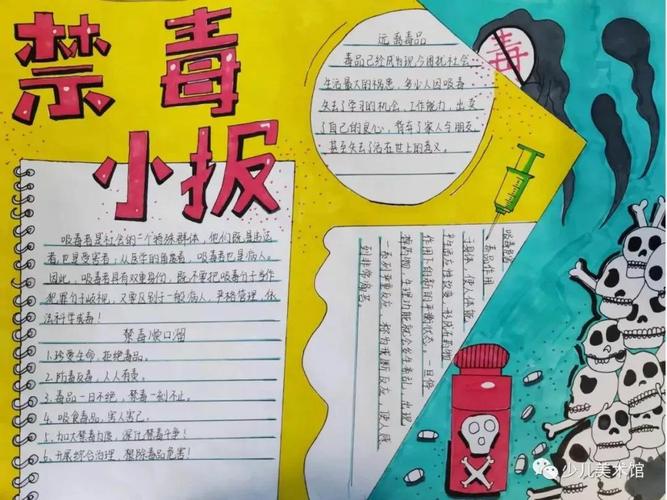 禁毒
小报
毒
远离毒品
毒品已经成为现今困扰社会
生活最大的祸患，多少人因吸毒
失去了学习的机会、工作能力，出卖
了自己的良心，背弃了家人与朋友，
甚至失去了活在世上的意义。
吸毒者是社会的一个特殊群体，他们既是违法
者也是受害者；从医学的角度看，吸毒者也是病人。
因此，吸毒者具有双重身份，既不要把吸毒分子当作
犯罪分子歧视，又要区别于一般病人，严格管理，依
法科学戒毒！
禁毒顺口溜
1.珍爱生命，拒绝毒品。
2.防毒反毒，人人有责。
3.毒品一日不绝，禁毒一刻不止。
4.吸食毒品，害人害己。
5.加大禁毒力度，深化禁毒斗争！
6.开展综合治理，禁除毒品危害！
吸毒危害
毒品作用
于身体，使人体能
产生适应性改变，形成在药物
作用下的新的平衡状态。一旦停
掉药物，生理功能就会发生紊乱，出现
一系列严重反应，称为戒断反应，使人感
到非常痛苦。
少儿美术馆